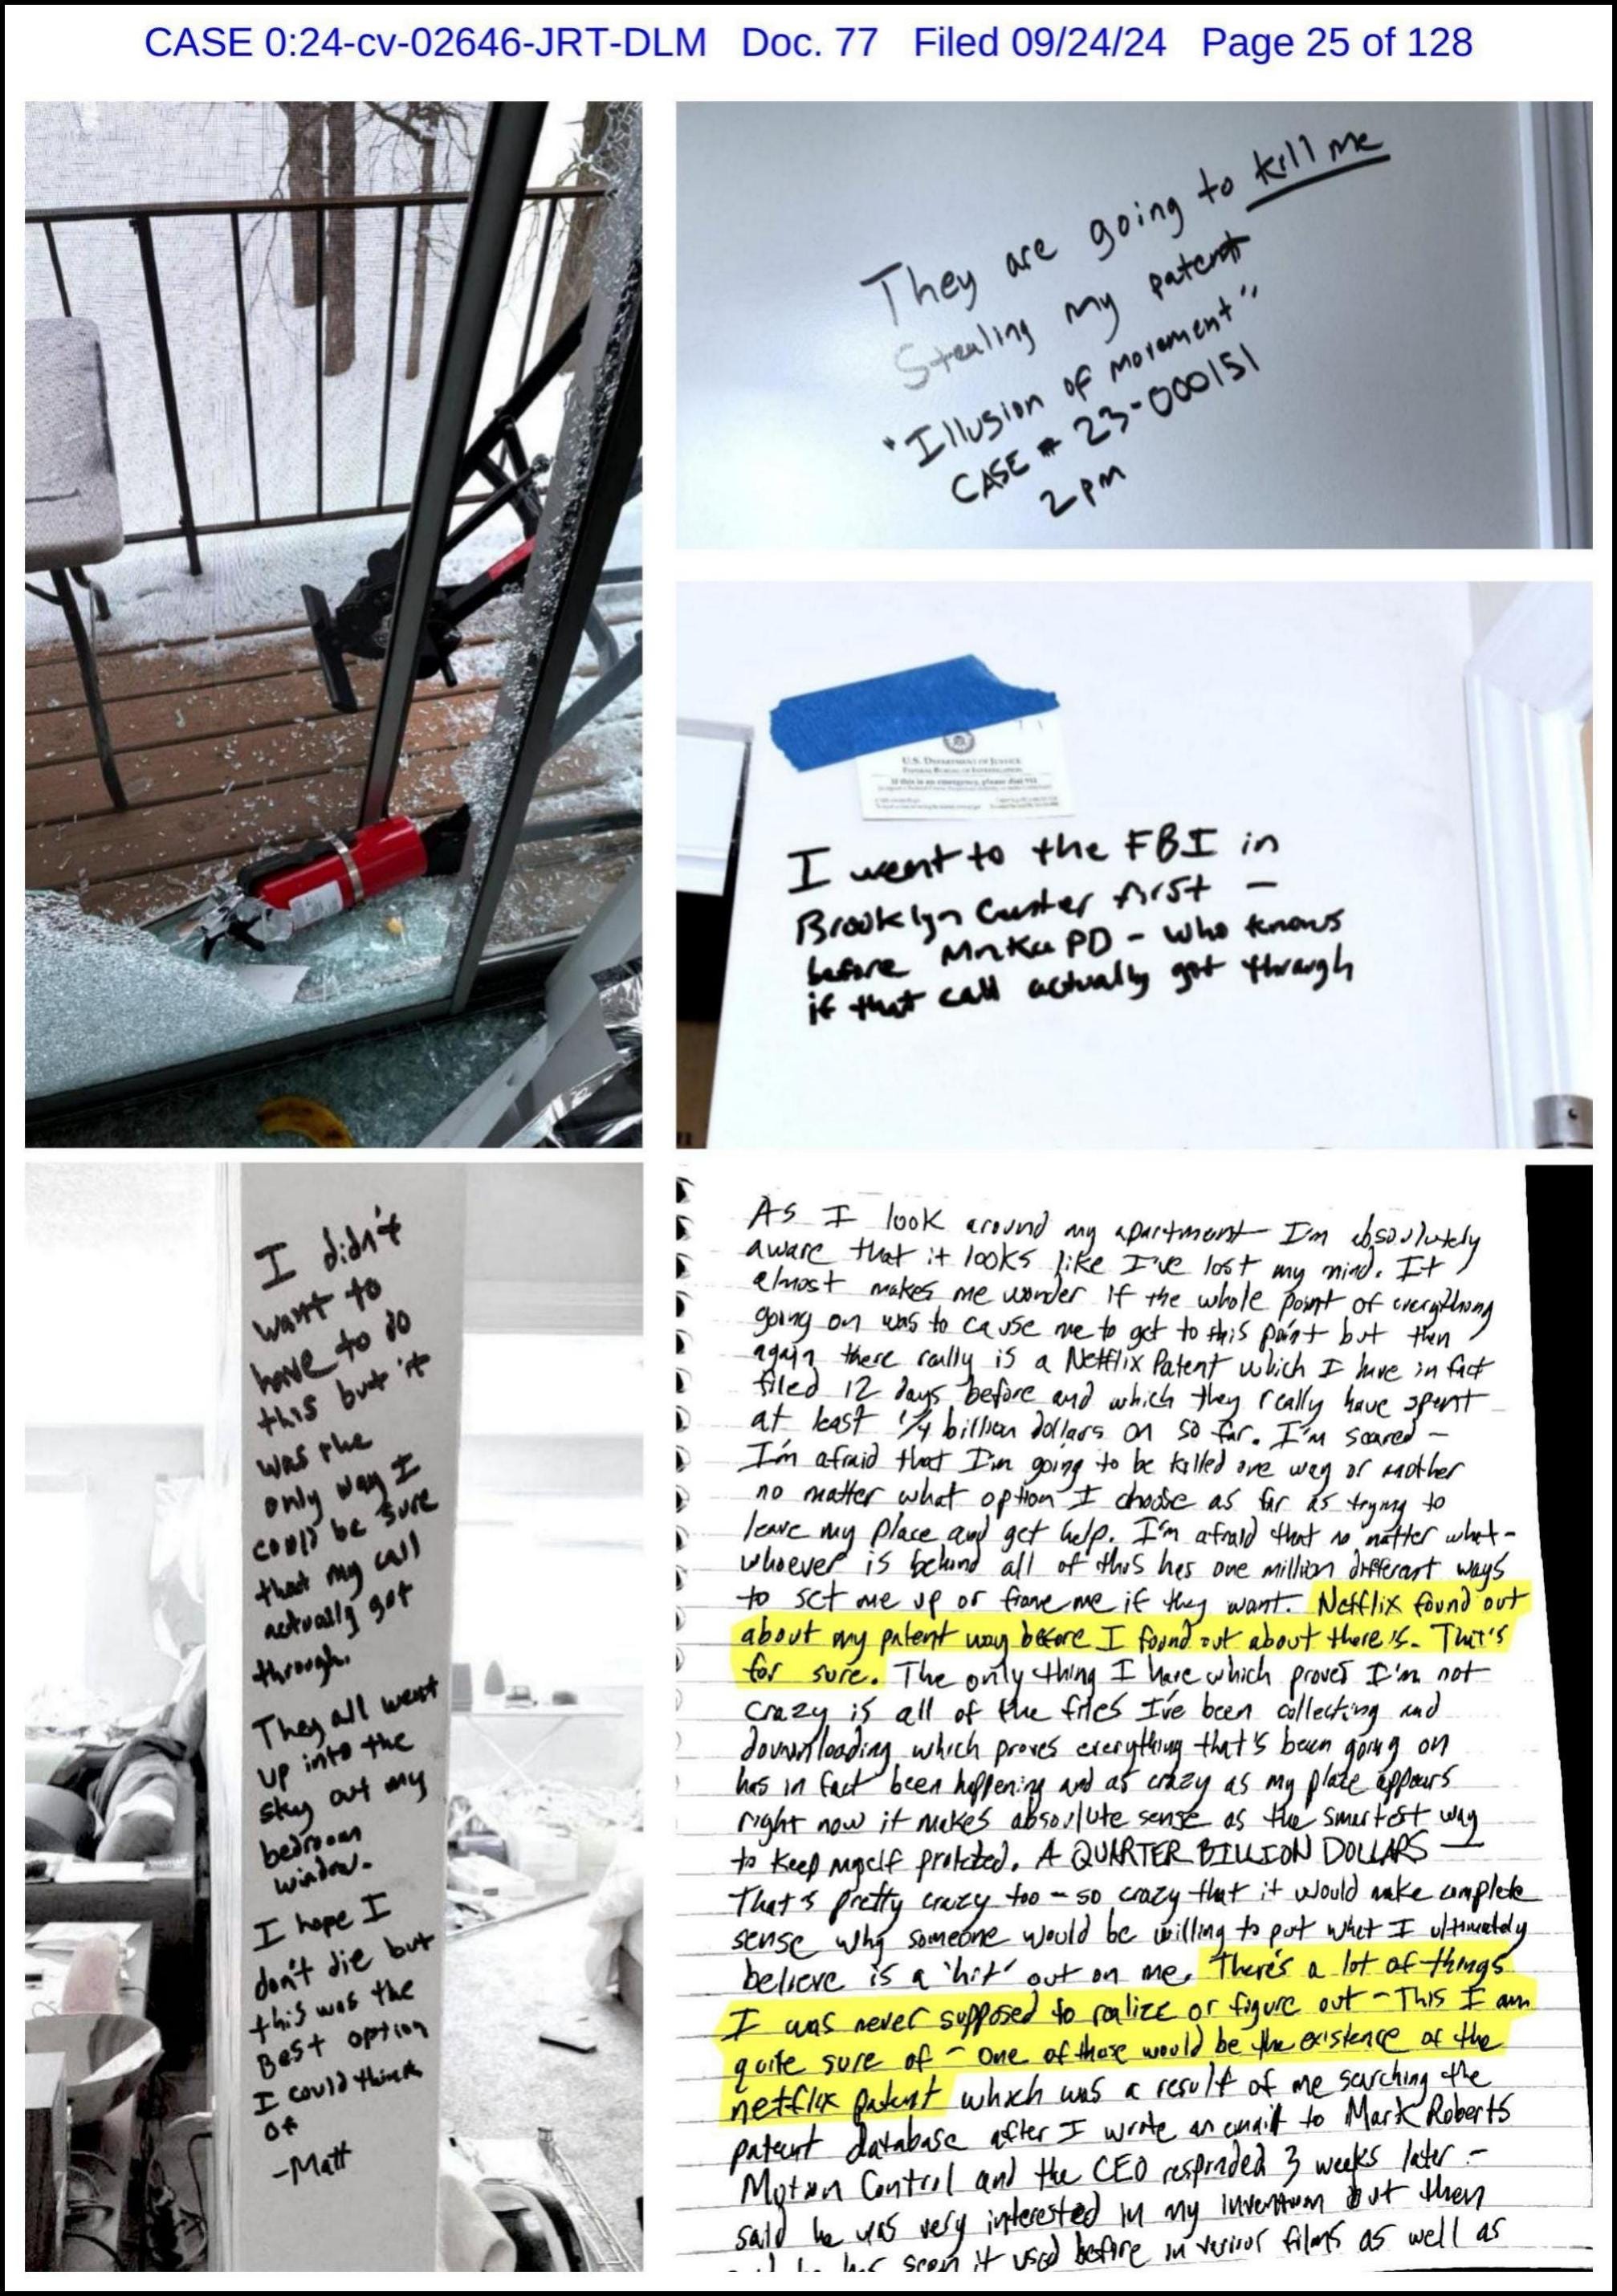 CASE 0:24-cv-02646-JRT-DLM Doc. 77 Filed 09/24/24 Page 25 of 128
They are going to kill me
Stealing my patent
"Illusion of movement"
CASE # 23-000151
2pm
U.S. DEPARTMENT OF JUSTICE
FEDERAL BUREAU OF INVESTIGATION
If this is an emergency, please dial 911
I went to the FBI in
Brooklyn Center first —
before MnKa PD - who knows
if that call actually got through
I didn't
want to
have to do
this but it
was the
only way I
could be sure
that my call
actually got
through.
They all went
up into the
sky out my
bedroom
window.
I hope I
don't die but
this was the
Best option
I could think
of
-Matt
As I look around my apartment I'm absolutely
aware that it looks like I've lost my mind. It
almost makes me wonder if the whole point of everything
going on was to cause me to get to this point but then
again there really is a Netflix Patent which I have in fact
filed 12 days before and which they really have spent
at least 1/4 billion dollars on so far. I'm scared -
I'm afraid that I'm going to be killed one way or another
no matter what option I choose as far as trying to
leave my place and get help. I'm afraid that no matter what -
whoever is behind all of this has one million different ways
to set me up or frame me if they want. Netflix found out
about my patent way before I found out about theirs. That's
for sure. The only thing I have which proves I'm not
crazy is all of the files I've been collecting and
downloading which proves everything that's been going on
has in fact been happening and as crazy as my place appears
right now it makes absolute sense as the smartest way
to keep myself protected. A QUARTER BILLION DOLLARS —
That's pretty crazy too - so crazy that it would make complete
sense why someone would be willing to put what I ultimately
believe is a 'hit' out on me. There's a lot of things
I was never supposed to realize or figure out - This I am
quite sure of - One of those would be the existence of the
netflix patent which was a result of me searching the
patent database after I wrote an email to Mark Roberts
Motion Control and the CEO responded 3 weeks later -
said he was very interested in my invention but then
he has seen it used before in various films as well as